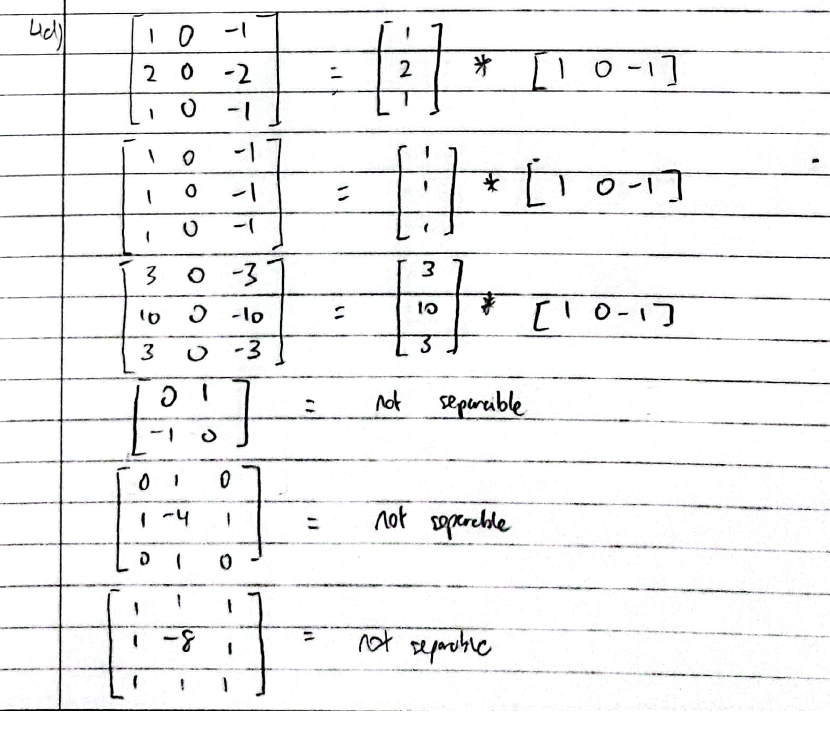 4d)
[1 0 -1
2 0 -2
1 0 -1] = [1
2
1] * [1 0 -1]
[1 0 -1
1 0 -1
1 0 -1] = [1
1
1] * [1 0 -1]
[3 0 -3
10 0 -10
3 0 -3] = [3
10
3] * [1 0 -1]
[0 1
-1 0] = not separable
[0 1 0
1 -4 1
0 1 0] = not seperable
[1 1 1
1 -8 1
1 1 1] = not separable